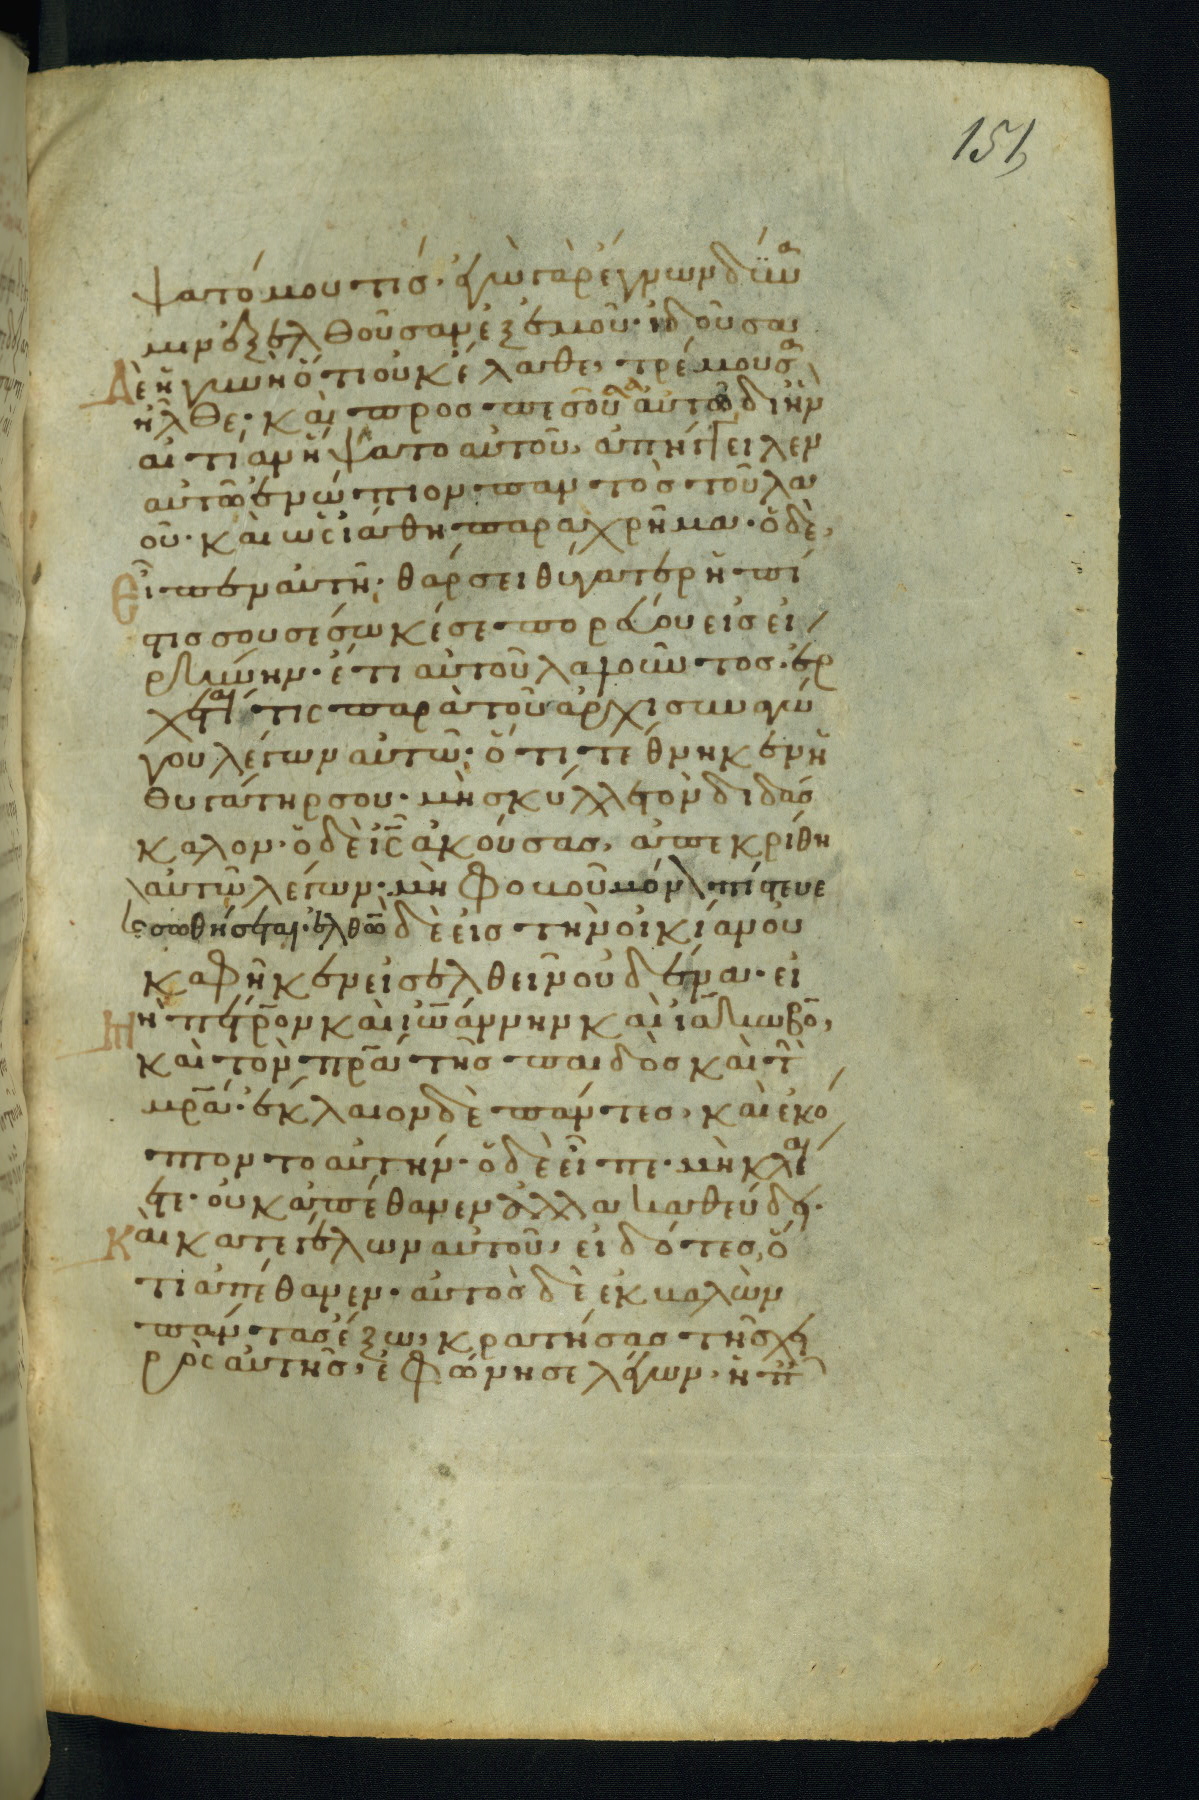 151
ψατό μου τίσ· ἐγὼ γὰρ ἔγνων δύνα
μιν ἐξελθοῦσαν ἐξ ἐμοῦ· ἰδοῦσα
δὲ ἡ γυνὴ ὅτι οὐκ ἔλαθε, τρέμουσα
ἦλθε· καὶ προσπεσοῦσα αὐτῶ δι ἣν
αἰτίαν ἥψατο αὐτοῦ, ἀπήγγειλεν
αὐτῶ ἐνώπιον παντὸσ τοῦ λα
οῦ· καὶ ὡς ἰάθη παραχρῆμα· ὁ δὲ,
εἶπεν αὐτῆ· θάρσει θύγατερ ἡ πί
στισ σου σέσωκέ σε πορεύου εἰσ εἰ
ρήνην· ἔτι αὐτοῦ λαλοῦντοσ· ἔρ
χεταί τις παρὰ τοῦ ἀρχισυναγώ
γου λέγων αὐτῶ· ὅτι τέθνηκεν ἡ
θυγάτηρ σου· μὴ σκύλλε τὸν διδάσ
καλον· ὁ δὲ ις ἀκούσασ, ἀπεκρίθη
αὐτῶ λέγων· μὴ φοβοῦ μόνον πίστευε
καὶ σωθήσεται· ἐλθὼν δὲ εἰσ τὴν οἰκίαν οὐ
κ ἀφῆκεν εἰσελθεῖν οὐδένα· εἰ
μὴ πέτρον καὶ ἰωάννην καὶ ἰάκωβον,
καὶ τὸν πρα τῆσ παιδὸσ καὶ τὴν
μρα· ἔκλαιον δὲ πάντεσ, καὶ ἐκό
πτοντο αὐτήν· ὁ δὲ εἶπε· μὴ κλαί
ετε· οὐκ ἀπέθανεν ἀλλὰ καθεύδει·
καὶ κατεγέλων αὐτοῦ, εἰδότεσ ὅ
τι ἀπέθανεν· αὐτὸσ δὲ ἐκβαλὼν
πάντασ ἔξω, κρατήσασ τῆσ χει
ρὸς αὐτῆσ, ἐφώνησε λέγων· ἡ παῖ